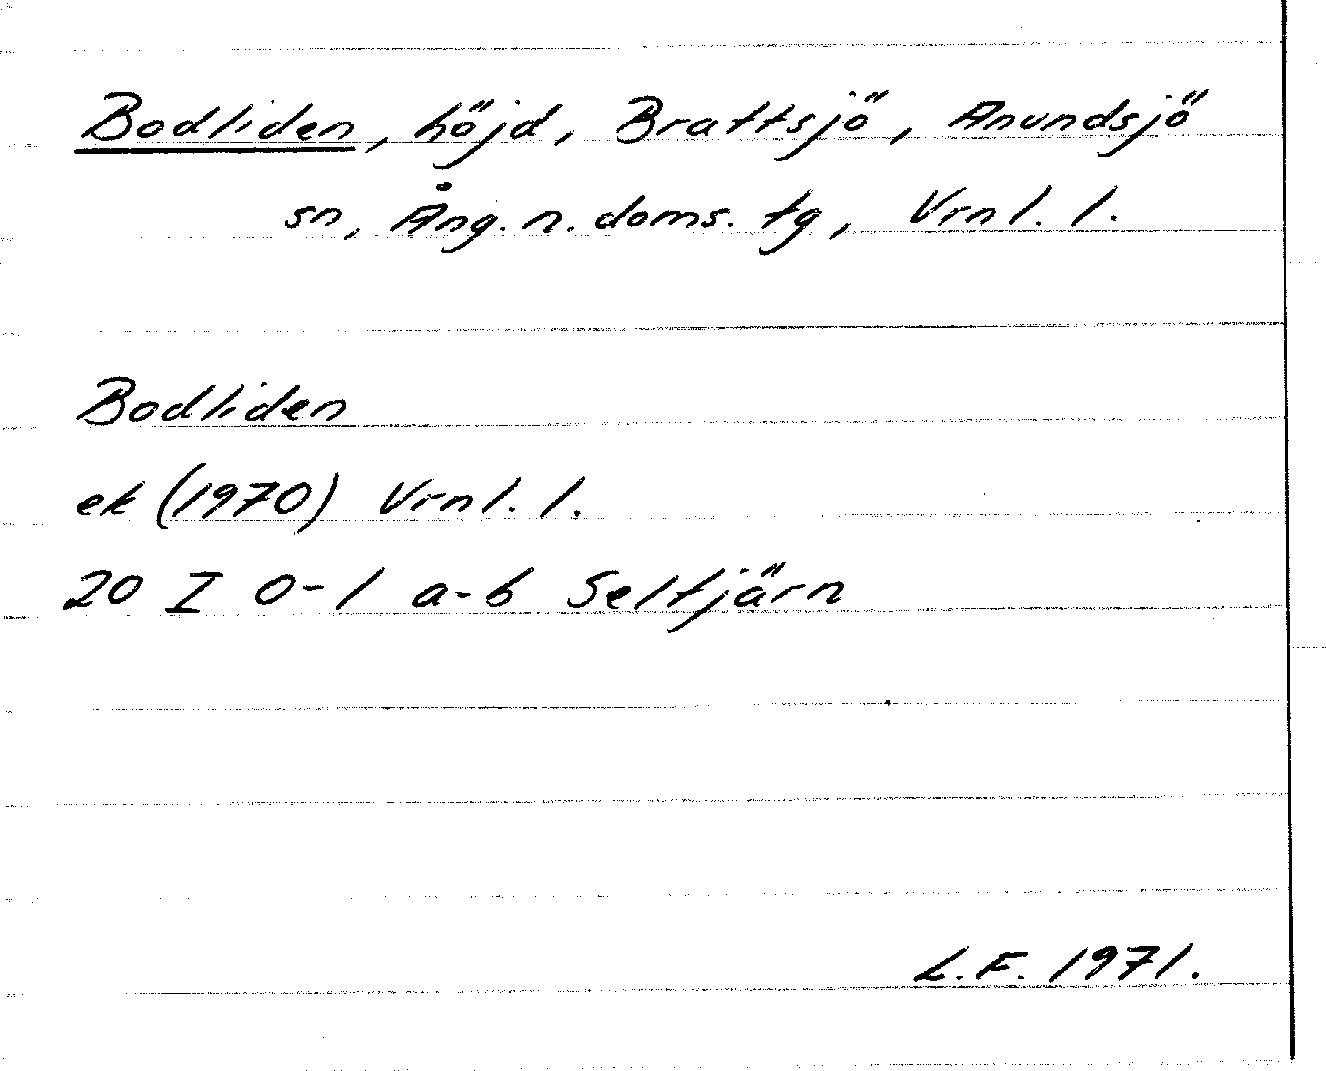 Bodliden, höjd, Brattsjö, Anundsjö
sn, Ång. n. doms. tg, Vrnl. l.
Bodliden
ek (1970) Vrnl. l.
20 I 0-1 a-b Seltjärn
L.F. 1971.